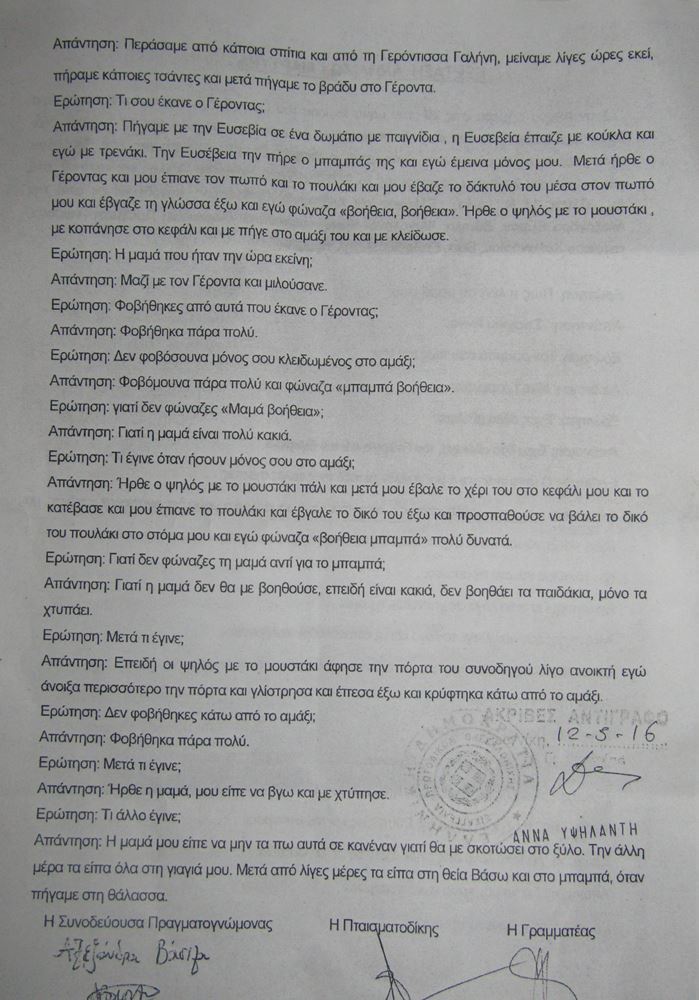 Απάντηση: Περάσαμε από κάποια σπίτια και από τη Γερόντισσα Γαλήνη, μείναμε λίγες ώρες εκεί,
πήραμε κάποιες τσάντες και μετά πήγαμε το βράδυ στο Γέροντα.
Ερώτηση: Τι σου έκανε ο Γέροντας;
Απάντηση: Πήγαμε με την Ευσεβία σε ένα δωμάτιο με παιγνίδια , η Ευσεβεία έπαιζε με κούκλα και
εγώ με τρενάκι. Την Ευσέβεια την πήρε ο μπαμπάς της και εγώ έμεινα μόνος μου. Μετά ήρθε ο
Γέροντας και μου έπιανε τον πωπό και το πουλάκι και μου έβαζε το δάκτυλό του μέσα στον πωπό
μου και έβγαζε τη γλώσσα έξω και εγώ φώναζα «βοήθεια, βοήθεια». Ήρθε ο ψηλός με το μουστάκι ,
με κοπάνησε στο κεφάλι και με πήγε στο αμάξι του και με κλείδωσε.
Ερώτηση: Η μαμά που ήταν την ώρα εκείνη;
Απάντηση: Μαζί με τον Γέροντα και μιλούσανε.
Ερώτηση: Φοβήθηκες από αυτά που έκανε ο Γέροντας;
Απάντηση: Φοβήθηκα πάρα πολύ.
Ερώτηση: Δεν φοβόσουνα μόνος σου κλειδωμένος στο αμάξι;
Απάντηση: Φοβόμουνα πάρα πολύ και φώναζα «μπαμπά βοήθεια».
Ερώτηση: γιατί δεν φώναζες «Μαμά βοήθεια»;
Απάντηση: Γιατί η μαμά είναι πολύ κακιά.
Ερώτηση: Τι έγινε όταν ήσουν μόνος σου στο αμάξι;
Απάντηση: Ήρθε ο ψηλός με το μουστάκι πάλι και μετά μου έβαλε το χέρι του στο κεφάλι μου και το
κατέβασε και μου έπιανε το πουλάκι και έβγαλε το δικό του έξω και προσπαθούσε να βάλει το δικό
του πουλάκι στο στόμα μου και εγώ φώναζα «βοήθεια μπαμπά» πολύ δυνατά.
Ερώτηση: Γιατί δεν φώναζες τη μαμά αντί για το μπαμπά;
Απάντηση: Γιατί η μαμά δεν θα με βοηθούσε, επειδή είναι κακιά, δεν βοηθάει τα παιδάκια, μόνο τα
χτυπάει.
Ερώτηση: Μετά τι έγινε;
Απάντηση: Επειδή οι ψηλός με το μουστάκι άφησε την πόρτα του συνοδηγού λίγο ανοικτή εγώ
άνοιξα περισσότερο την πόρτα και γλίστρησα και έπεσα έξω και κρύφτηκα κάτω από το αμάξι.
ΑΚΡΙΒΕΣ ΑΝΤΙΓΡΑΦΟ
Ερώτηση: Δεν φοβήθηκες κάτω από το αμάξι;
12-5-16
Απάντηση: Φοβήθηκα πάρα πολύ.
Ερώτηση: Μετά τι έγινε;
Απάντηση: Ήρθε η μαμά, μου είπε να βγω και με χτύπησε.
Ερώτηση: Τι άλλο έγινε;
ΑΝΝΑ ΥΨΗΛΑΝΤΗ
Απάντηση: Η μαμά μου είπε να μην τα πω αυτά σε κανέναν γιατί θα με σκοτώσει στο ξύλο. Την άλλη
μέρα τα είπα όλα στη γιαγιά μου. Μετά από λίγες μέρες τα είπα στη θεία Βάσω και στο μπαμπά, όταν
πήγαμε στη θάλασσα.
Η Συνοδεύουσα Πραγματογνώμονας Η Πταισματοδίκης Η Γραμματέας
Αλεξάνδρα